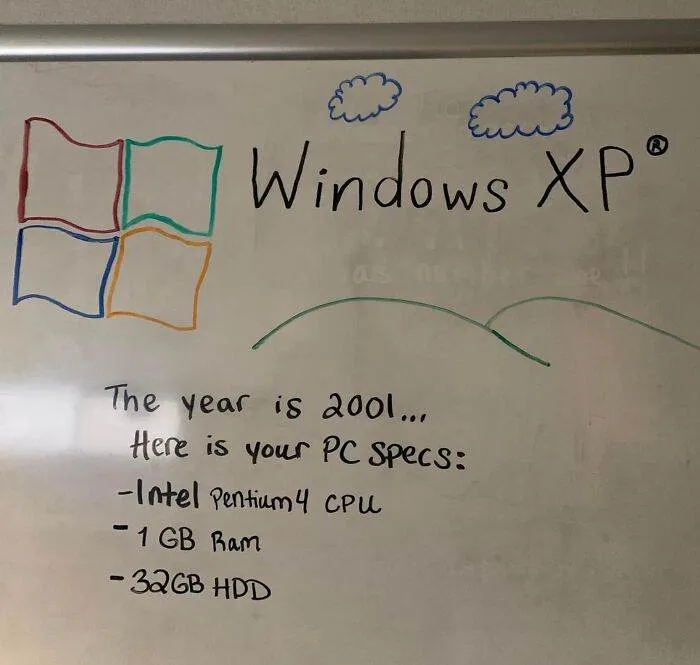 Windows XP®
The year is 2001...
Here is your PC specs:
-Intel Pentium 4 CPU
- 1 GB Ram
- 32GB HDD